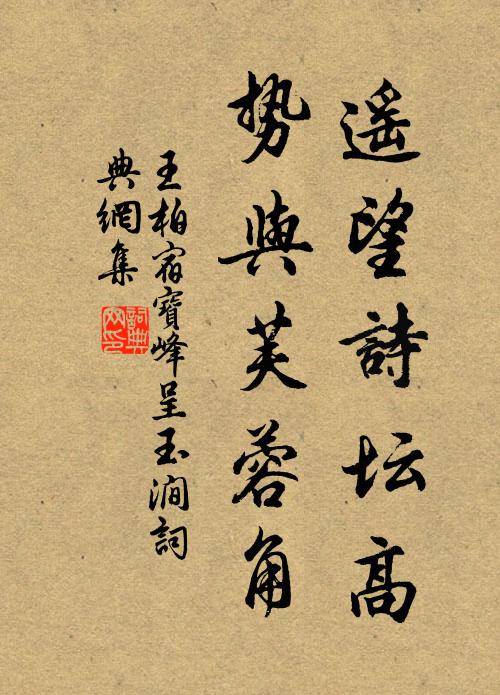 遥望詩坛高
势與芙蓉角
王柏宿寶峰呈玉澗詞
典網集
詞典
网印